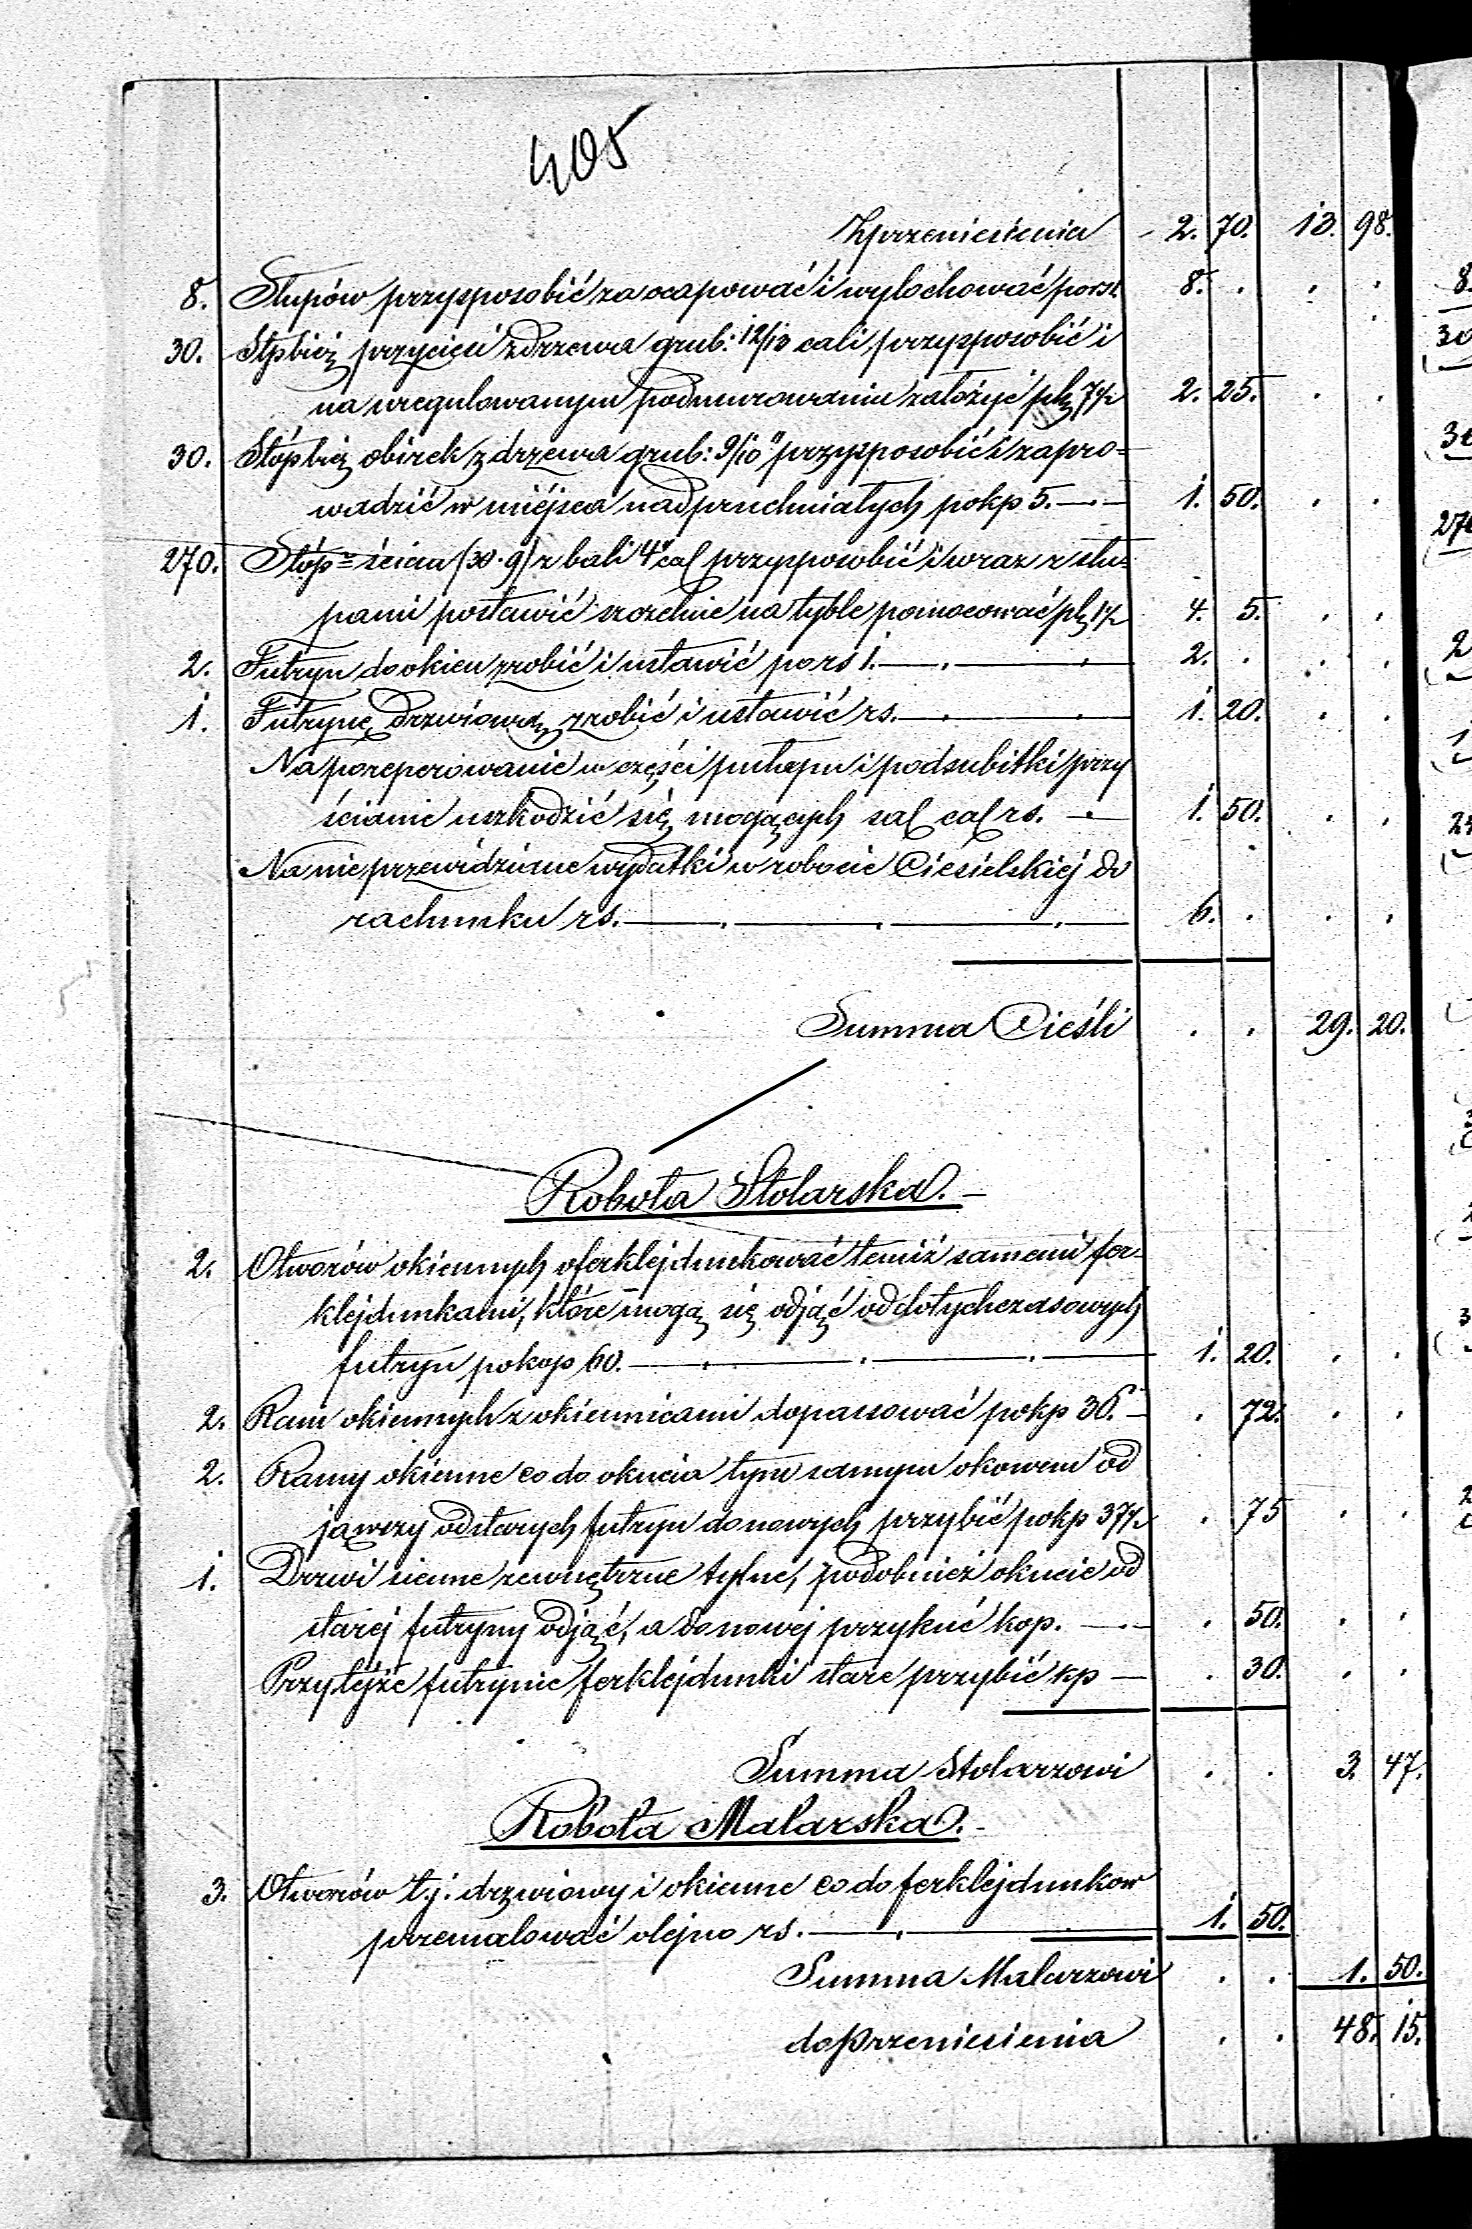 405
Zprzeniesienia 2. 70. 13. 98.
8. Słupów przysposobić zaocapować i wylochować pors 1. 8. . . .
30. Stpbież przycieśi z drzewa grub: 12/10 cali, przysposobić i
na uregulowanym podmurowaniu założyć pk 7½ 2. 25. . .
30. Stópbież obirek z drzewa grub: 9/10" przysposobić i zapro=
wadzić w miéjsca nadpruchniałych pokp 5. 1. 50. . .
270. Stóp= ścian (30·9) z bali 4" cal przysposobić i wraz z słu=
pami postawić szczelnie na tyble pomocować pk 1½ 4. 5. . .
2. Futryn do okien zrobić i ustawić po rs 1. 2. . . .
1. Futrynę drzwiową zrobić i ustawić rs. 1. 20. . .
Na poreperowanie w części pułapu i podsubitki przy
ścianie uszkodzić się mogących sal cal rs. 1. 50. . .
Na nieprzewidziane wydatki w robocie Ciesielskiéj do
rachunku rs. 6. . . .
Summa Cieśli . . 29. 20.
Robota Stolarska.
2. Otworów okiennych oferklejdunkować temiż samemi fer-
klejdunkami, które mogą się odjąć od dotychczasowych
futryn po kop 60. 1. 20. . .
2. Ram okiennych z okiennicami dopassować pokp 36. . 72. . .
2. Ramy okienne co do okucia tym samym okowem od
jąwszy od starych futryn do nowych przybić pokp 37½ . 75 . .
1. Drzwi sienne zewnętrzne tylne, podobnież okucie od
starej futryny odjąć, a do nowej przykuć kop. . 50. . .
Przy téjże futrynie ferklejdunki stare przybić kp . 30. . .
Summa Stolarzowi . . 3. 47.
Robota Malarska.
3. Otworów t.j. drzwiowy i okienne co do ferklejdunkow
przemalować olejno rs. 1. 50.
Summa Malarzowi . . 1. 50.
do Przeniesienia . . 48. 15.